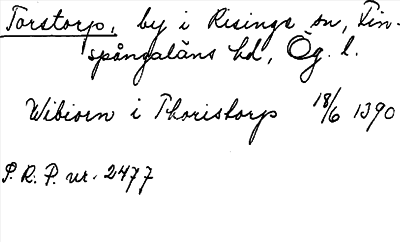 Torstorp, by i Risinge sn, Fin-
spångaläns hd, Ög. l.
Wibiorn i Thoristorp 18/6 1390
P. R. P. nr. 2477